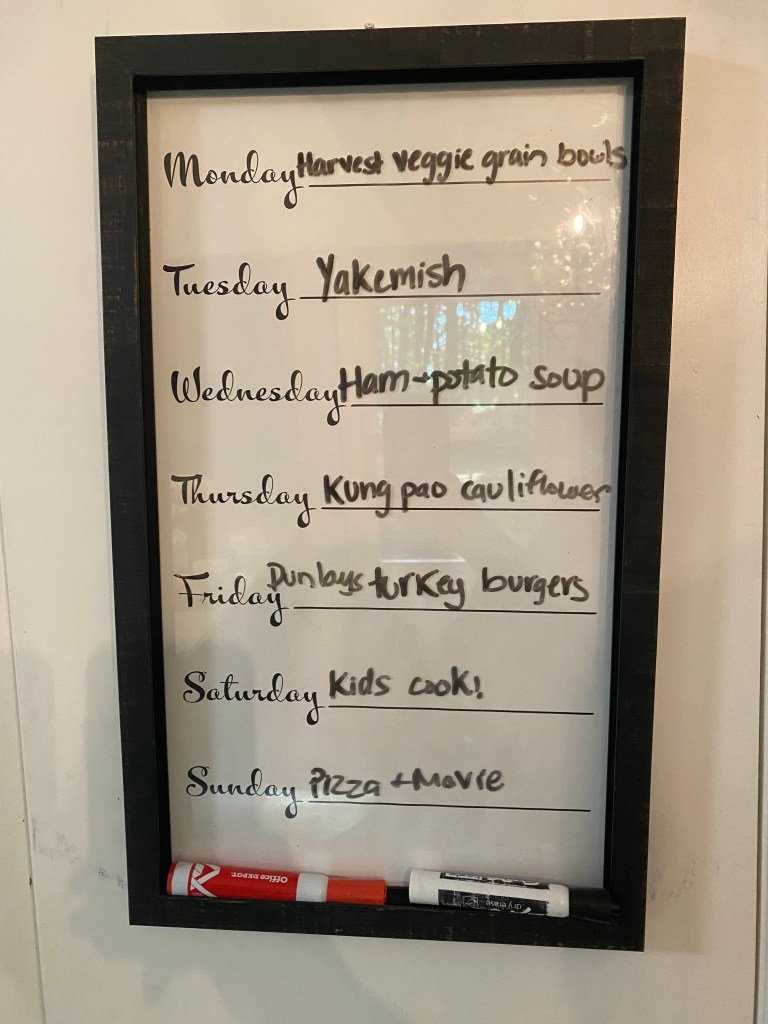 Monday Harvest veggie grain bowls
Tuesday Yakemish
Wednesday Ham + potato soup
Thursday Kung pao cauliflower
Friday Dunlays turkey burgers
Saturday Kids cook!
Sunday Pizza + Movie
Office DEPOT
dry erase